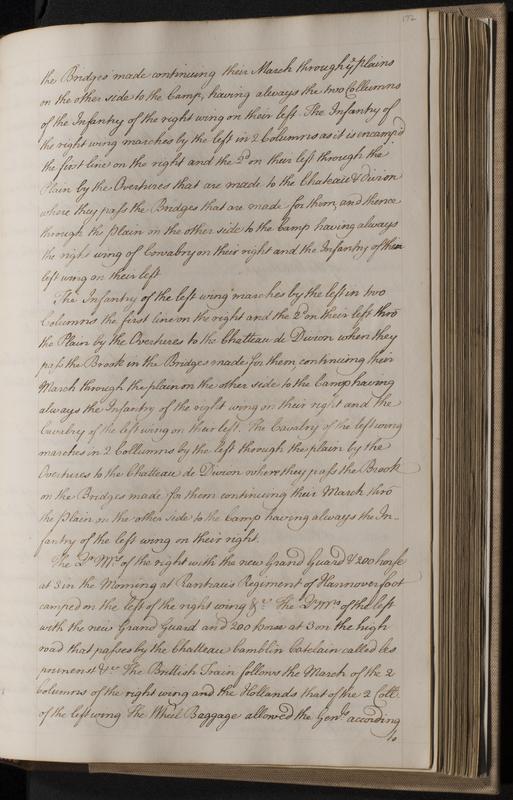 172
the Bridges made continuing their March through ye plains
on the other side to the Camp, having always the two Collumns
of the Infantry of the right wing on their left. The Infantry of
the right wing marches by the left in 2 Columns as it is encamp'd
the first line on the right and the 2d on their left through the
Plain by the Overtures that are made to the Chateau d Divion
where they pass the Bridges that are made for them, and thence
through the Plain on the other side to the Camp having always
the right wing of Cavalry on their right and the Infantry of their
left wing on their left
The Infantry of the left wing marches by the left in two
Columns the first line on the right and the 2d on their left thrô
the Plain by the Overtures to the Chatteau de Divion when they
pass the Brook in the Bridges made for them continuing their
March through the plain on the other side to the Camp having
always the Infantry of the right wing on their right and the
Cavalry of the left wing on their left. The Cavalry of the left wing
marches in 2 Collumns by the left through the plain by the
Overtures to the Chatteau de Divion where they pass the Brook
on the Bridges made for them continuing their March thrô
the Plain on the other side to the Camp having always the In-
fantry of the left wing on their right.
The Qr Mrs of the right with the new Grand Guard & 200 horse
at 3 in the Morning at Rantzaus Regiment of Hannover foot
camped on the left of the right wing &c. The Qr Mrs of the left
with the new Grand Guard and 200 horse at 3 on the high
road that passes by the Chatteau Camblin Catelain called les
&c The Brittish Train follows the March of the 2
Columns of the right wing and the Hollands that of the 2 Coll:
of the left wing The Wheel Baggage allowed the Genls according
to